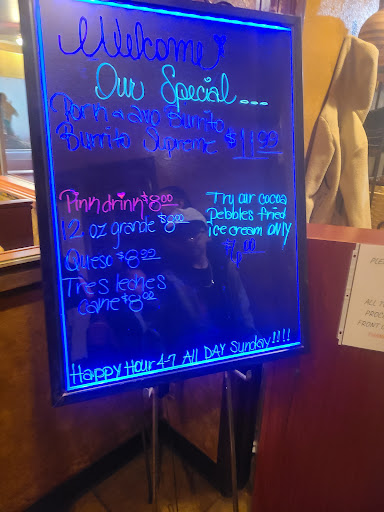 Welcome
Our Special ....
Pork & avo Burrito
Burrito Supreme $11.99
Pink drink $8.00
12 oz grande $8.00
Queso $8.00
Tres leches
cake $8.00
Try our cocoa
Pebbles fried
ice cream ONLY
$6.00
Happy Hour 4-7 All DAY Sunday!!!!
ALL
FRONT